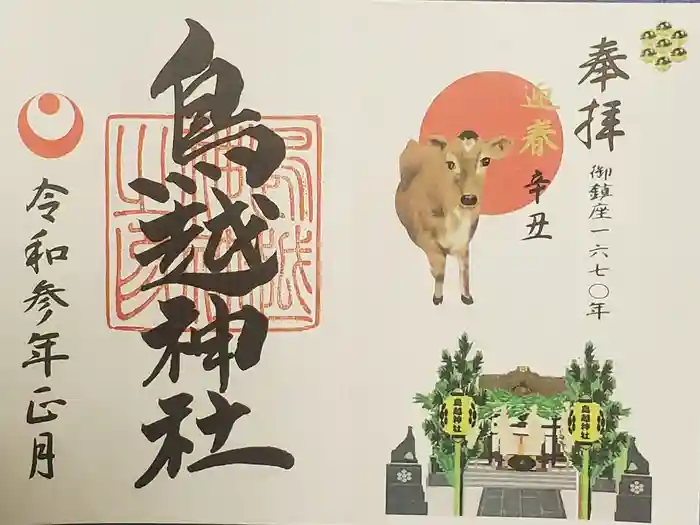 奉拝
御鎮座一六七〇年
迎春
辛丑
鳥越神社
鳥越神社
鳥越神社
令和参年正月